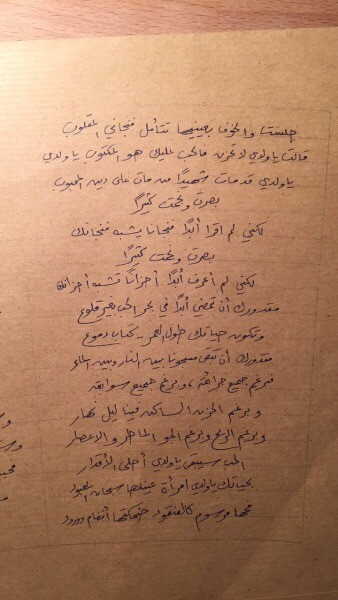 جلست والخوف بعينيها تتأمل فنجاني المقلوب
قالت ياولدي لا تحزن فالحب عليك هو المكتوب ياولدي
ياولدي قد مات شهيدًا من مات على دين المحبوب
بصرت ونجمت كثيرًا
لكني لم اقرا أبدًا فنجانا يشبه فنجانك
بصرت ونجمت كثيرًا
لكني لم أعرف أبدًا أحزانًا تشبه أحزانك
مقدورك أن تمضي أبدًا في بحر الحب بغير قلوع
وتكون حياتك طول العمر .. كتاب دموع
مقدورك أن تبقى مسجونا بين النار وبين الماء
فبرغم جميع حرائقه ، وبرغم جميع سوابقه
وبرغم الحزن الساكن فينا ليل نهار
وبرغم الريح وبرغم الجو الماطر والاعصار
الحب سيبقى ياولدي أحلى الأقدار
بحياتك ياولدي امرأة عيناها سبحان المعبود
فمها مرسوم كالعنقود ضحكتها أنغام وورود